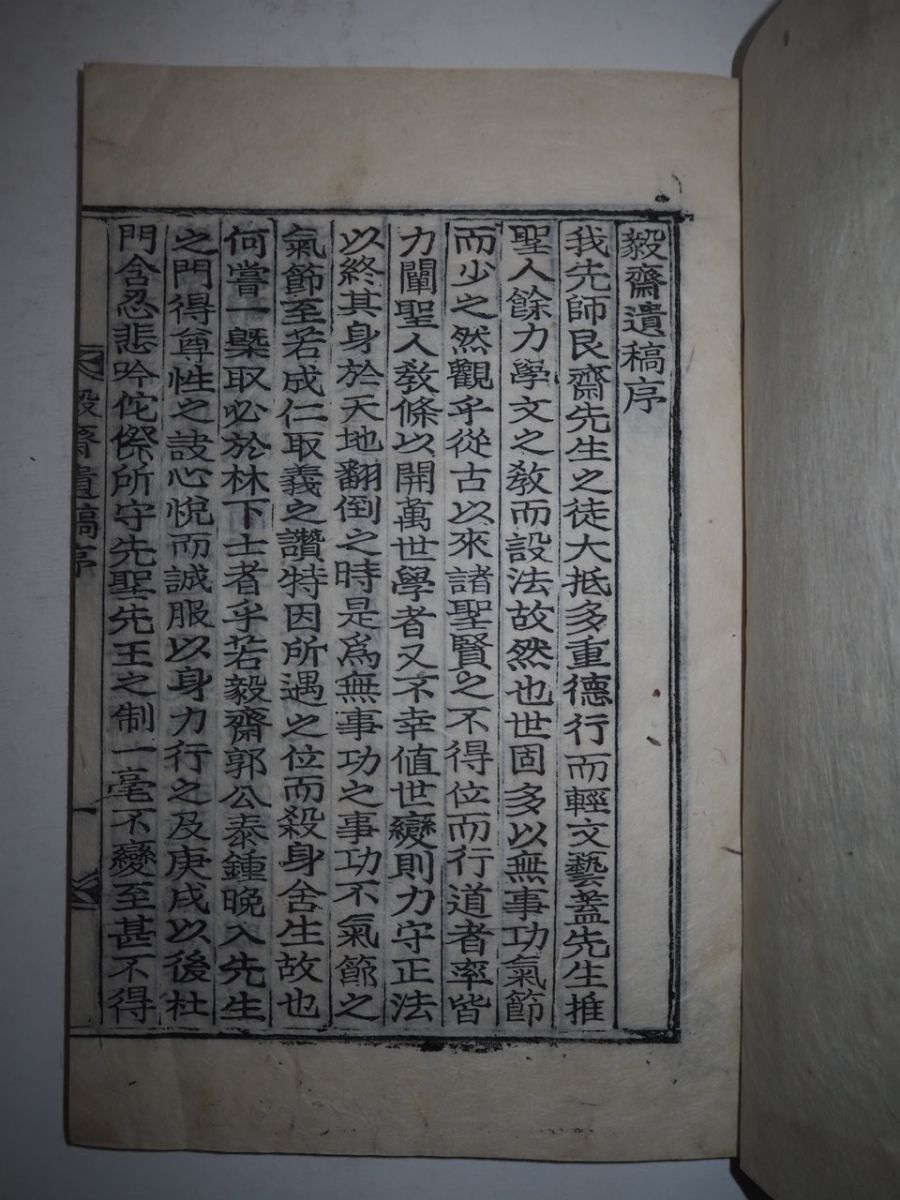 毅齋遺稿序
我先師艮齋先生之徒大抵多重德行而輕文藝蓋先生推
聖人餘力學文之教而設法故然也世固多以無事功氣節
而少之然觀乎從古以來諸聖賢之不得位而行道者率皆
力闡聖人教條以開萬世學者又不幸値世變則力守正法
以終其身於天地翻倒之時是爲無事功之事功不氣節之
氣節至若成仁取義之讚特因所遇之位而殺身舍生故也
何嘗一槩取必於林下士者乎若毅齋郭公泰鍾晩入先生
之門得尊性之訣心悅而誠服以身力行之及庚戌以後杜
門含忍悲吟侘傺所守先聖先王之制一毫不變至甚不得
毅齋遺稿序
一